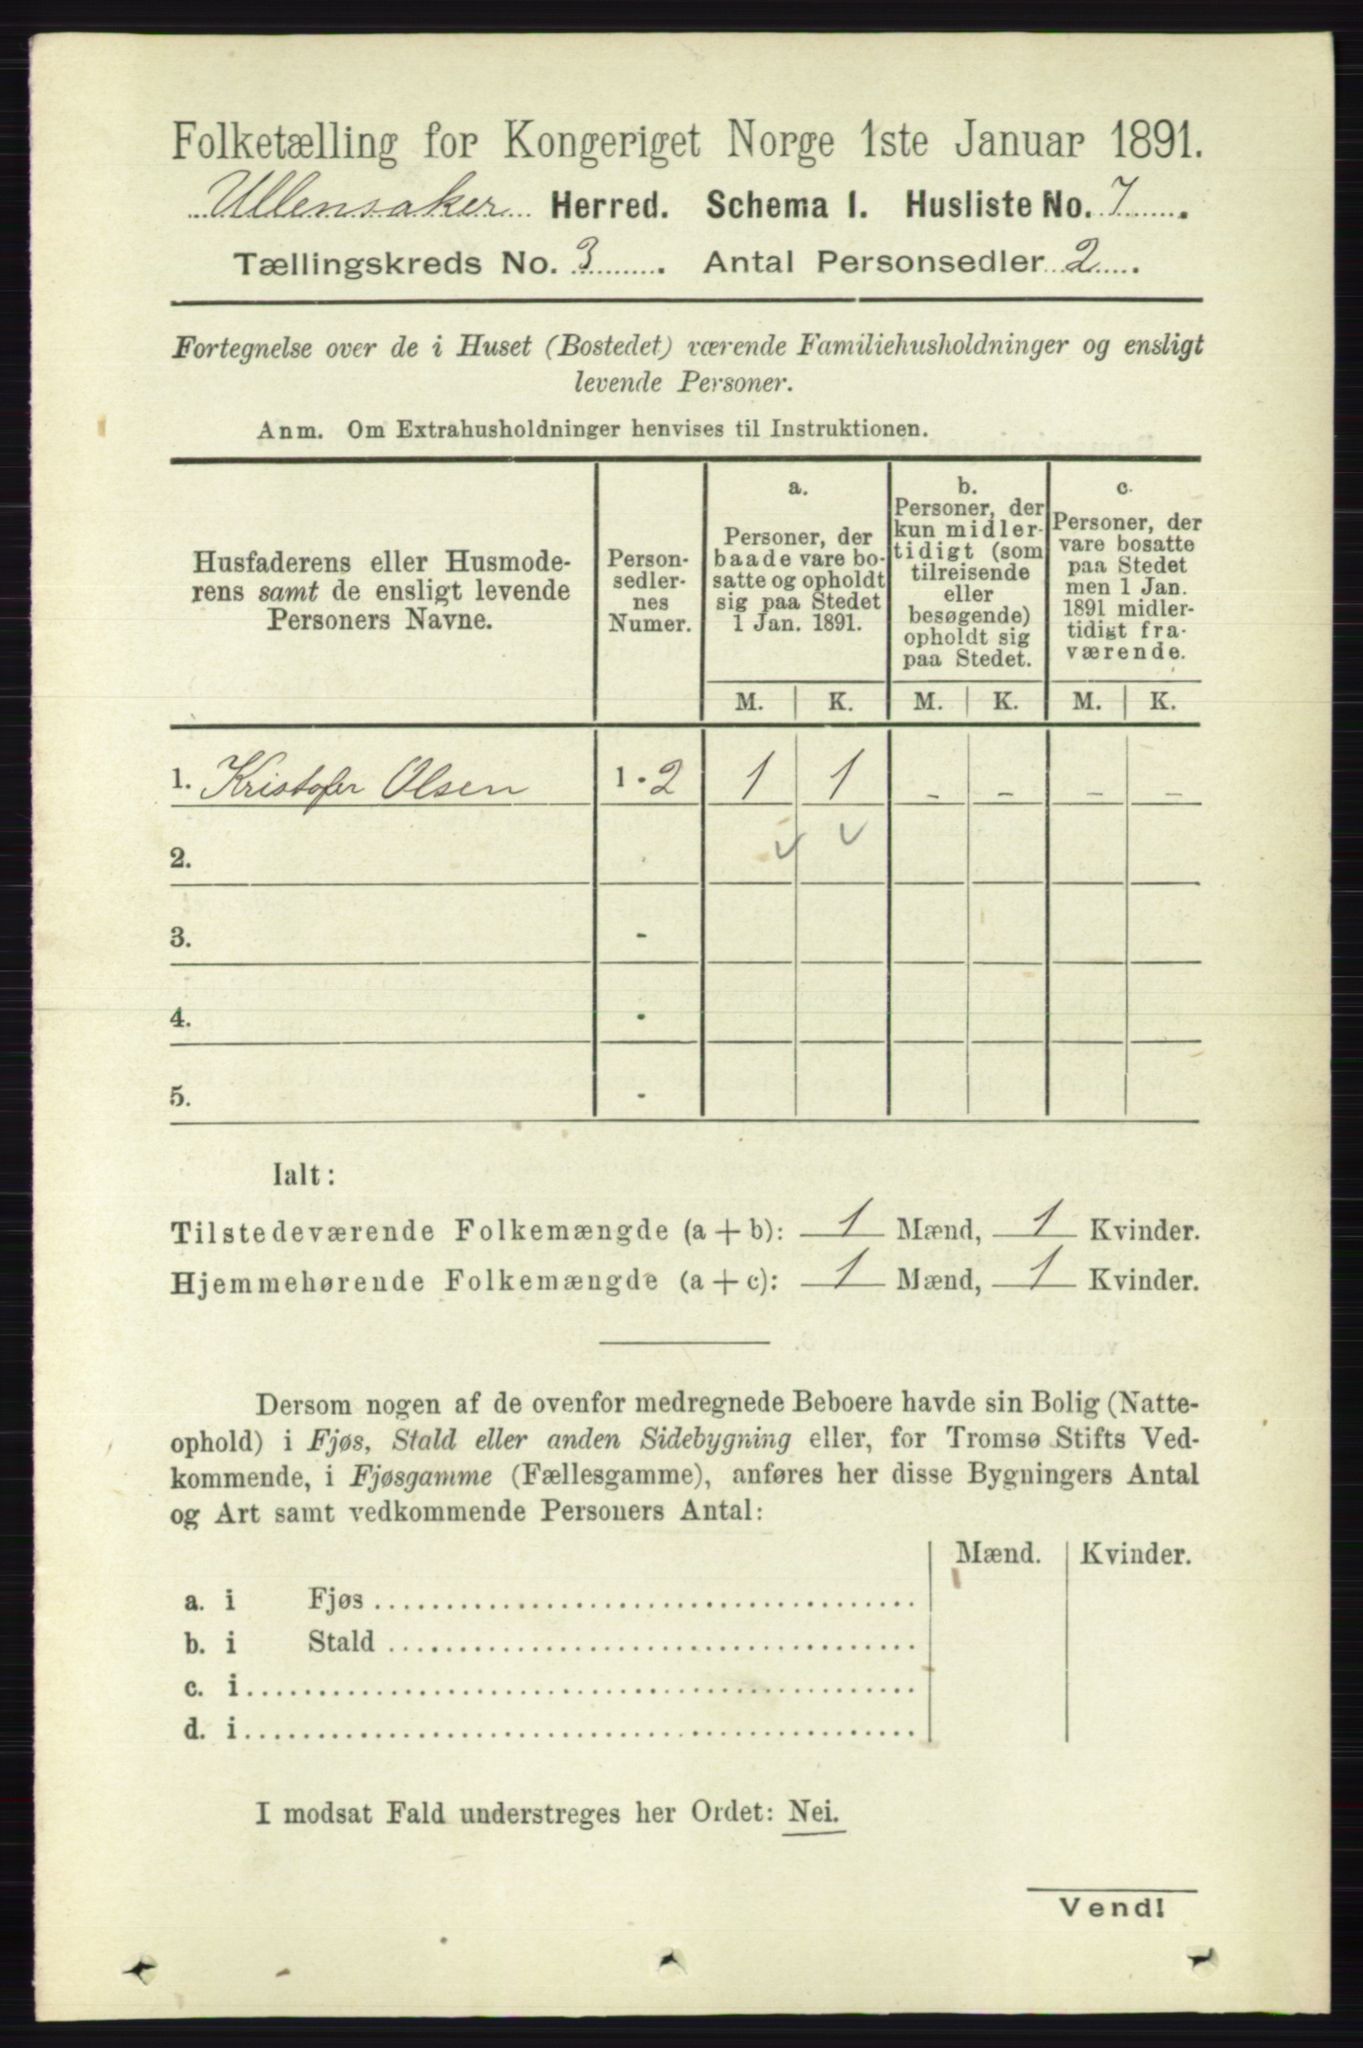 Folketælling for Kongeriget Norge 1ste Januar 1891.
Ullensaker Herred. Schema 1. Husliste No. 7.
Tællingskreds No. 3. Antal Personsedler 2.
Fortegnelse over de i Huset (Bostedet) værende Familiehusholdninger og ensligt
levende Personer.
Anm. Om Extrahusholdninger henvises til Instruktionen.
Husfaderens eller Husmode-
rens samt de ensligt levende
Personers Navne.
Person-
sedler-
nes
Numer.
a.
Personer, der
baade vare bo-
satte og opholdt
sig paa Stedet
1 Jan. 1891.
b.
Personer, der
kun midler-
tidigt (som
tilreisende
eller
besøgende)
opholdt sig
paa Stedet.
c.
Personer, der
vare bosatte
paa Stedet
men 1 Jan.
1891 midler-
tidigt fra-
værende.
M. K. M. K. M. K.
1. Kristofer Olsen 1 - 2 1 1 - - - -
2.
3. -
4. -
5. -
Ialt:
Tilstedeværende Folkemængde (a + b): 1 Mænd, 1 Kvinder.
Hjemmehørende Folkemængde (a + c): 1 Mænd, 1 Kvinder.
Dersom nogen af de ovenfor medregnede Beboere havde sin Bolig (Natte-
ophold) i Fjøs, Stald eller anden Sidebygning eller, for Tromsø Stifts Ved-
kommende, i Fjøsgamme (Fællesgamme), anføres her disse Bygningers Antal
og Art samt vedkommende Personers Antal:
Mænd. Kvinder.
a. i Fjøs
b. i Stald
c. i
d. i
I modsat Fald understreges her Ordet: Nei.
Vend!